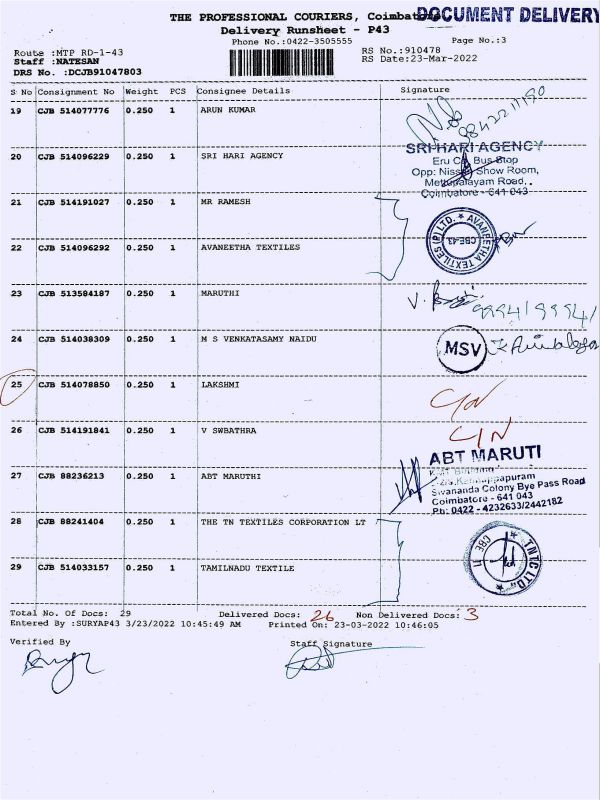 THE PROFESSIONAL COURIERS, Coimbatore
DOCUMENT DELIVERY
Delivery Runsheet - P43
Phone No.:0422-3505555
Page No.:3
Route :MTP RD-1-43
RS No.:910478
Staff :NATESAN
RS Date:23-Mar-2022
DRS No. :DCJB91047803
S No Consignment No Weight PCS Consignee Details Signature
19 CJB 514077776 0.250 1 ARUN KUMAR
9842211190
20 CJB 514096229 0.250 1 SRI HARI AGENCY
SRI HARI AGENCY
Eru Co. Bus Stop
Opp: Nissan Show Room,
Mettupalayam Road,
Coimbatore - 641 043
21 CJB 514191027 0.250 1 MR RAMESH
22 CJB 514096292 0.250 1 AVANEETHA TEXTILES
AVANEETHA TEXTILES (P) LTD. ★
CBE-43
23 CJB 513584187 0.250 1 MARUTHI
V.
24 CJB 514038309 0.250 1 M S VENKATASAMY NAIDU
MSV
25 CJB 514078850 0.250 1 LAKSHMI
26 CJB 514191841 0.250 1 V SWBATHRA
C/N
27 CJB 88236213 0.250 1 ABT MARUTHI
ABT MARUTI
Sivananda Colony Bye Pass Road
Coimbatore - 641 043
Ph: 0422 - 4232633/2442182
28 CJB 88241404 0.250 1 THE TN TEXTILES CORPORATION LT
29 CJB 514033157 0.250 1 TAMILNADU TEXTILE
TNTC LTD.
CBE 11
Total No. Of Docs: 29 Delivered Docs: 26 Non Delivered Docs: 3
Entered By :SURYAP43 3/23/2022 10:45:49 AM Printed On: 23-03-2022 10:46:05
Verified By Staff Signature